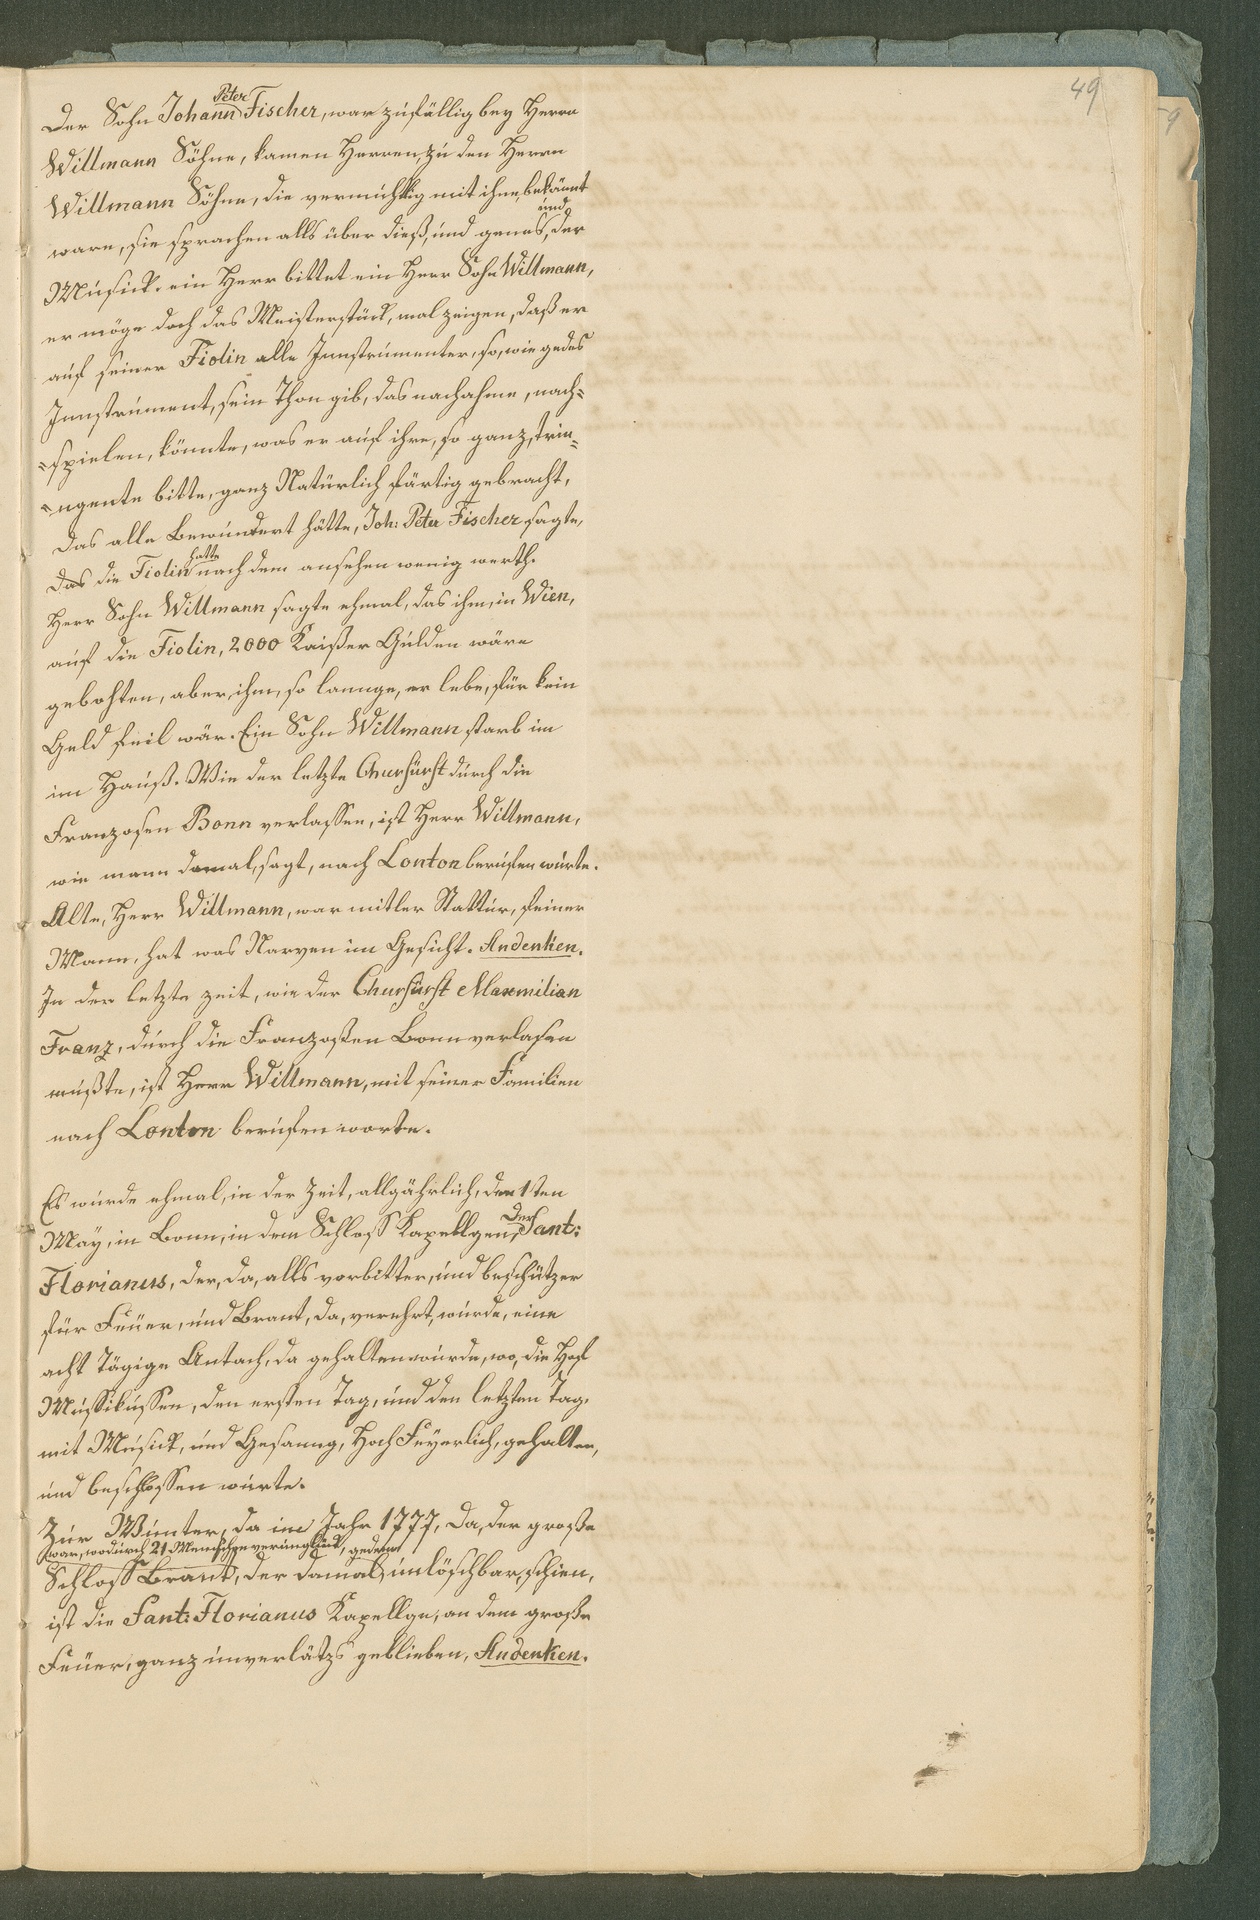 49
9
Der Sohn Johann Peter Fischer, war zufällig bey Herrn
Willmann Söhne, kamen Herren, zu den Herrn
Willmann Söhne, die vermuthlig mit ihne, bekannt
ware, sie sprachen alls über dieß, und genes, und der
Musick. ein Herr bittet ein Herr Sohn Willmann,
er möge doch das Meisterstück, mal zeigen, daß er
auf seiner Fiolin alle Innstrumenter, so, wie gedes
Innstrument, sein Thon gib, das nachahme, nach=
=spielen, könnte, was er auf ihre, so ganz, strin=
=ngente bitte, ganz Natürlich färtig gebracht,
Das alle Bewundert hätte, Joh: Peter Fischer sagte,
Das die Fiolin hatte nach dem ansehen wenig werth.
Herr Sohn Willmann sagte ehmal, das ihm, in Wien,
auf die Fiolin, 2000 Kaißer Gulden wäre
gebohten, aber, ihm, so lannge, er lebe, für kein
Geld feil wär. Ein Sohn Willmann starb im
im Hauß. Wie der letzte Churfürst durch die
Franzosen Bonn verlassen, ist Herr Willmann,
wie mann damal, sagt, nach Lonton berufen wurte.
Alte, Herr Willmann, war mitler Stattur, feiner
Mann, hat was Narven im Gesicht. Andenken.
In der letzte zeit, wie der Churfürst Maxmilian
Franz, durch die Franzoßen Bonn verlasen
mußte, ist Herr Willmann, mit seiner Familien
nach Lonton berufen worte.
Es wurde ehmal, in der Zeit, allgährlich, den 1ten
May, in Bonn, in dem Schloss Kapellgen, Der Sant:
Florianus, der, da, alls vorbitter, und beschützer
für Feuer, und Brant, da, verehrt, wurde, eine
acht Tägige Antach, da gehalten wurde, wo, die Hof
Mussikussen, den ersten Tag, und den letzten Tag,
mit Musick, und Gesanng, Hoch Feyerlich, gehalten,
und beschlossen wurte.
Zur Winter, da im Jahr 1777, Da, der große
war, wodurch 21 Menschen verunglück, gedenn
Schloss Brant, der damal, unlöschbar, schien,
ist die Sant: Florianus Kapellge, an dem große
Feuer, ganz unverlätzs geblieben, Andenken.